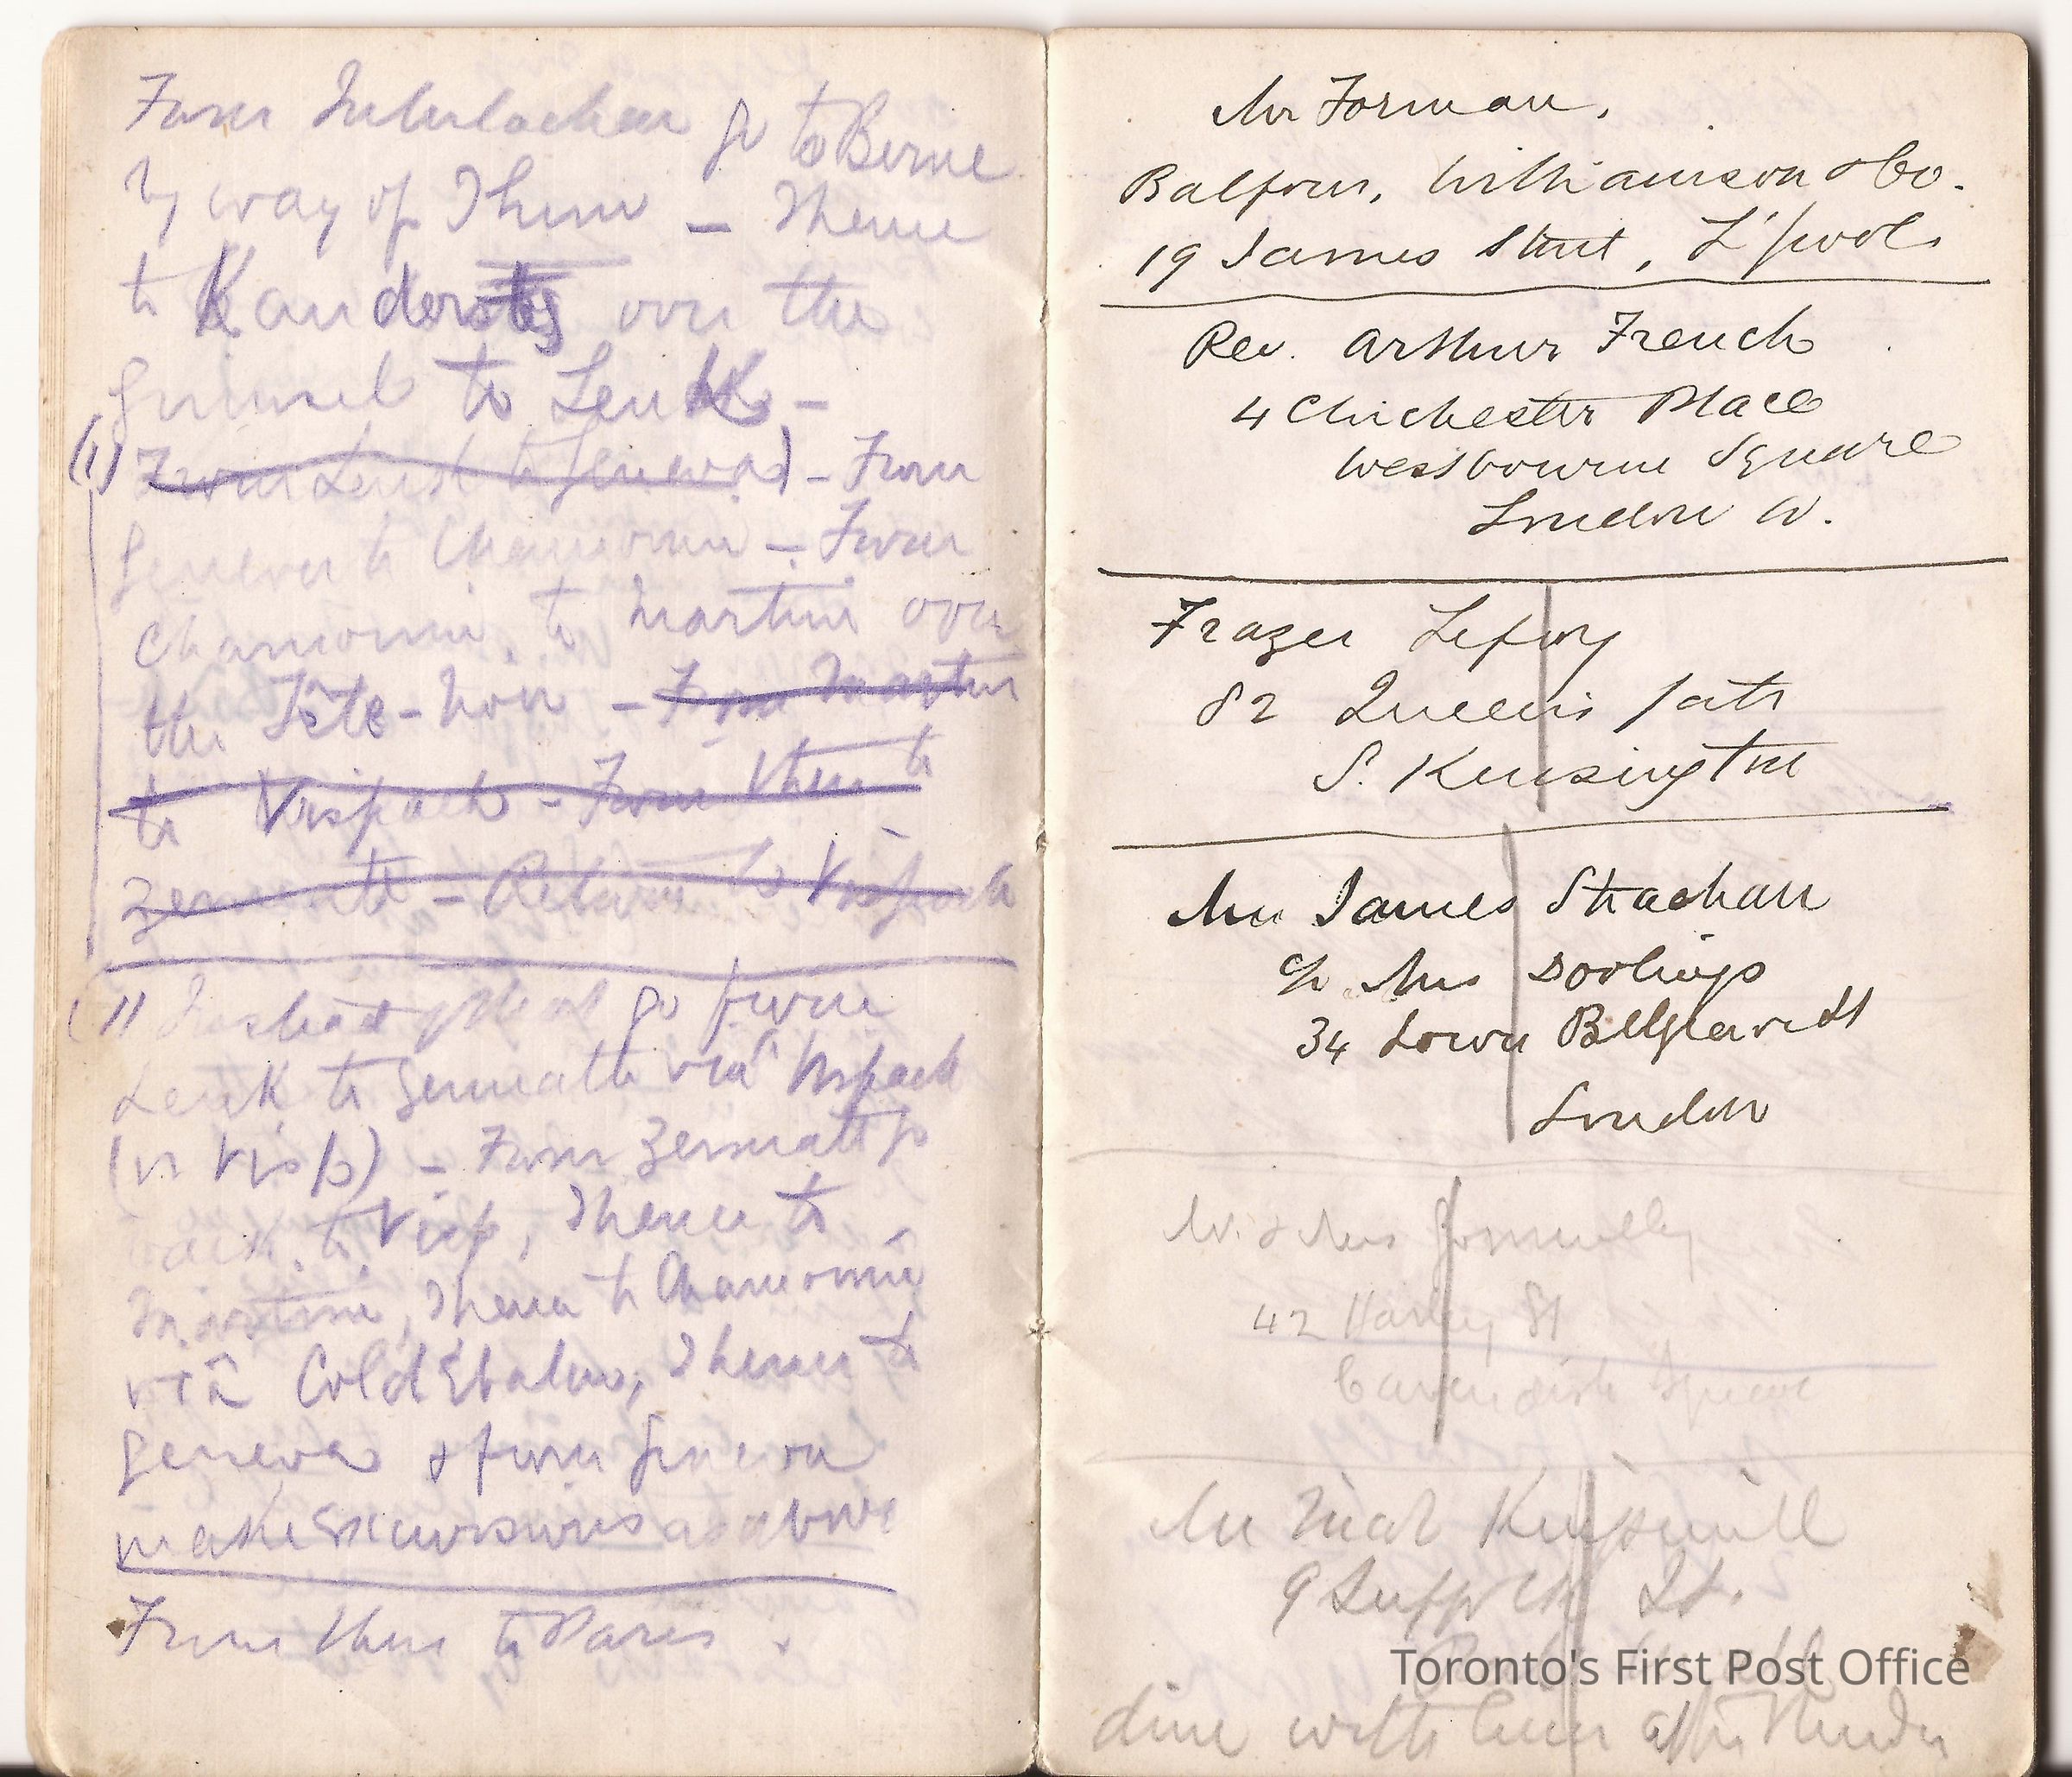 From Interlachen go to Berne
by way of Thun – Thence
to Kandersteg over the
Grimsel to Leuk –
(1) From Leuk to Geneva) – From
Geneva to Chamounix – From
Chamounix to Martini over
the Tête-Noir – From Martini
to Vispach – From there to
Zermatt – Return to Vispach
(1) Instead of that go from
Leuk to Zermatt via Vispach
(or Visp) – From Zermatt go
back to Visp, Thence to
Martini, Thence to Chamounix
via Cold Ebalm, Thence to
Geneva & from Geneva
make excursions as above
From there to Paris.
Mr Forman,
Balfour, Williamson & Co.
19 James Street, L'pool
Rev. Arthur French
4 Chichester Place
Westbourne Square
London W.
Frazer Lefroy
82 Queens Gate
S. Kensington
Mr James Strachan
c/o Mrs Doolings
34 Lower Belgrave St
London
Mr. & Mrs
42 Harley St
Cavendish Square
Mr Kingsmill
9 Suffolk St.
dine with him after
Toronto's First Post Office